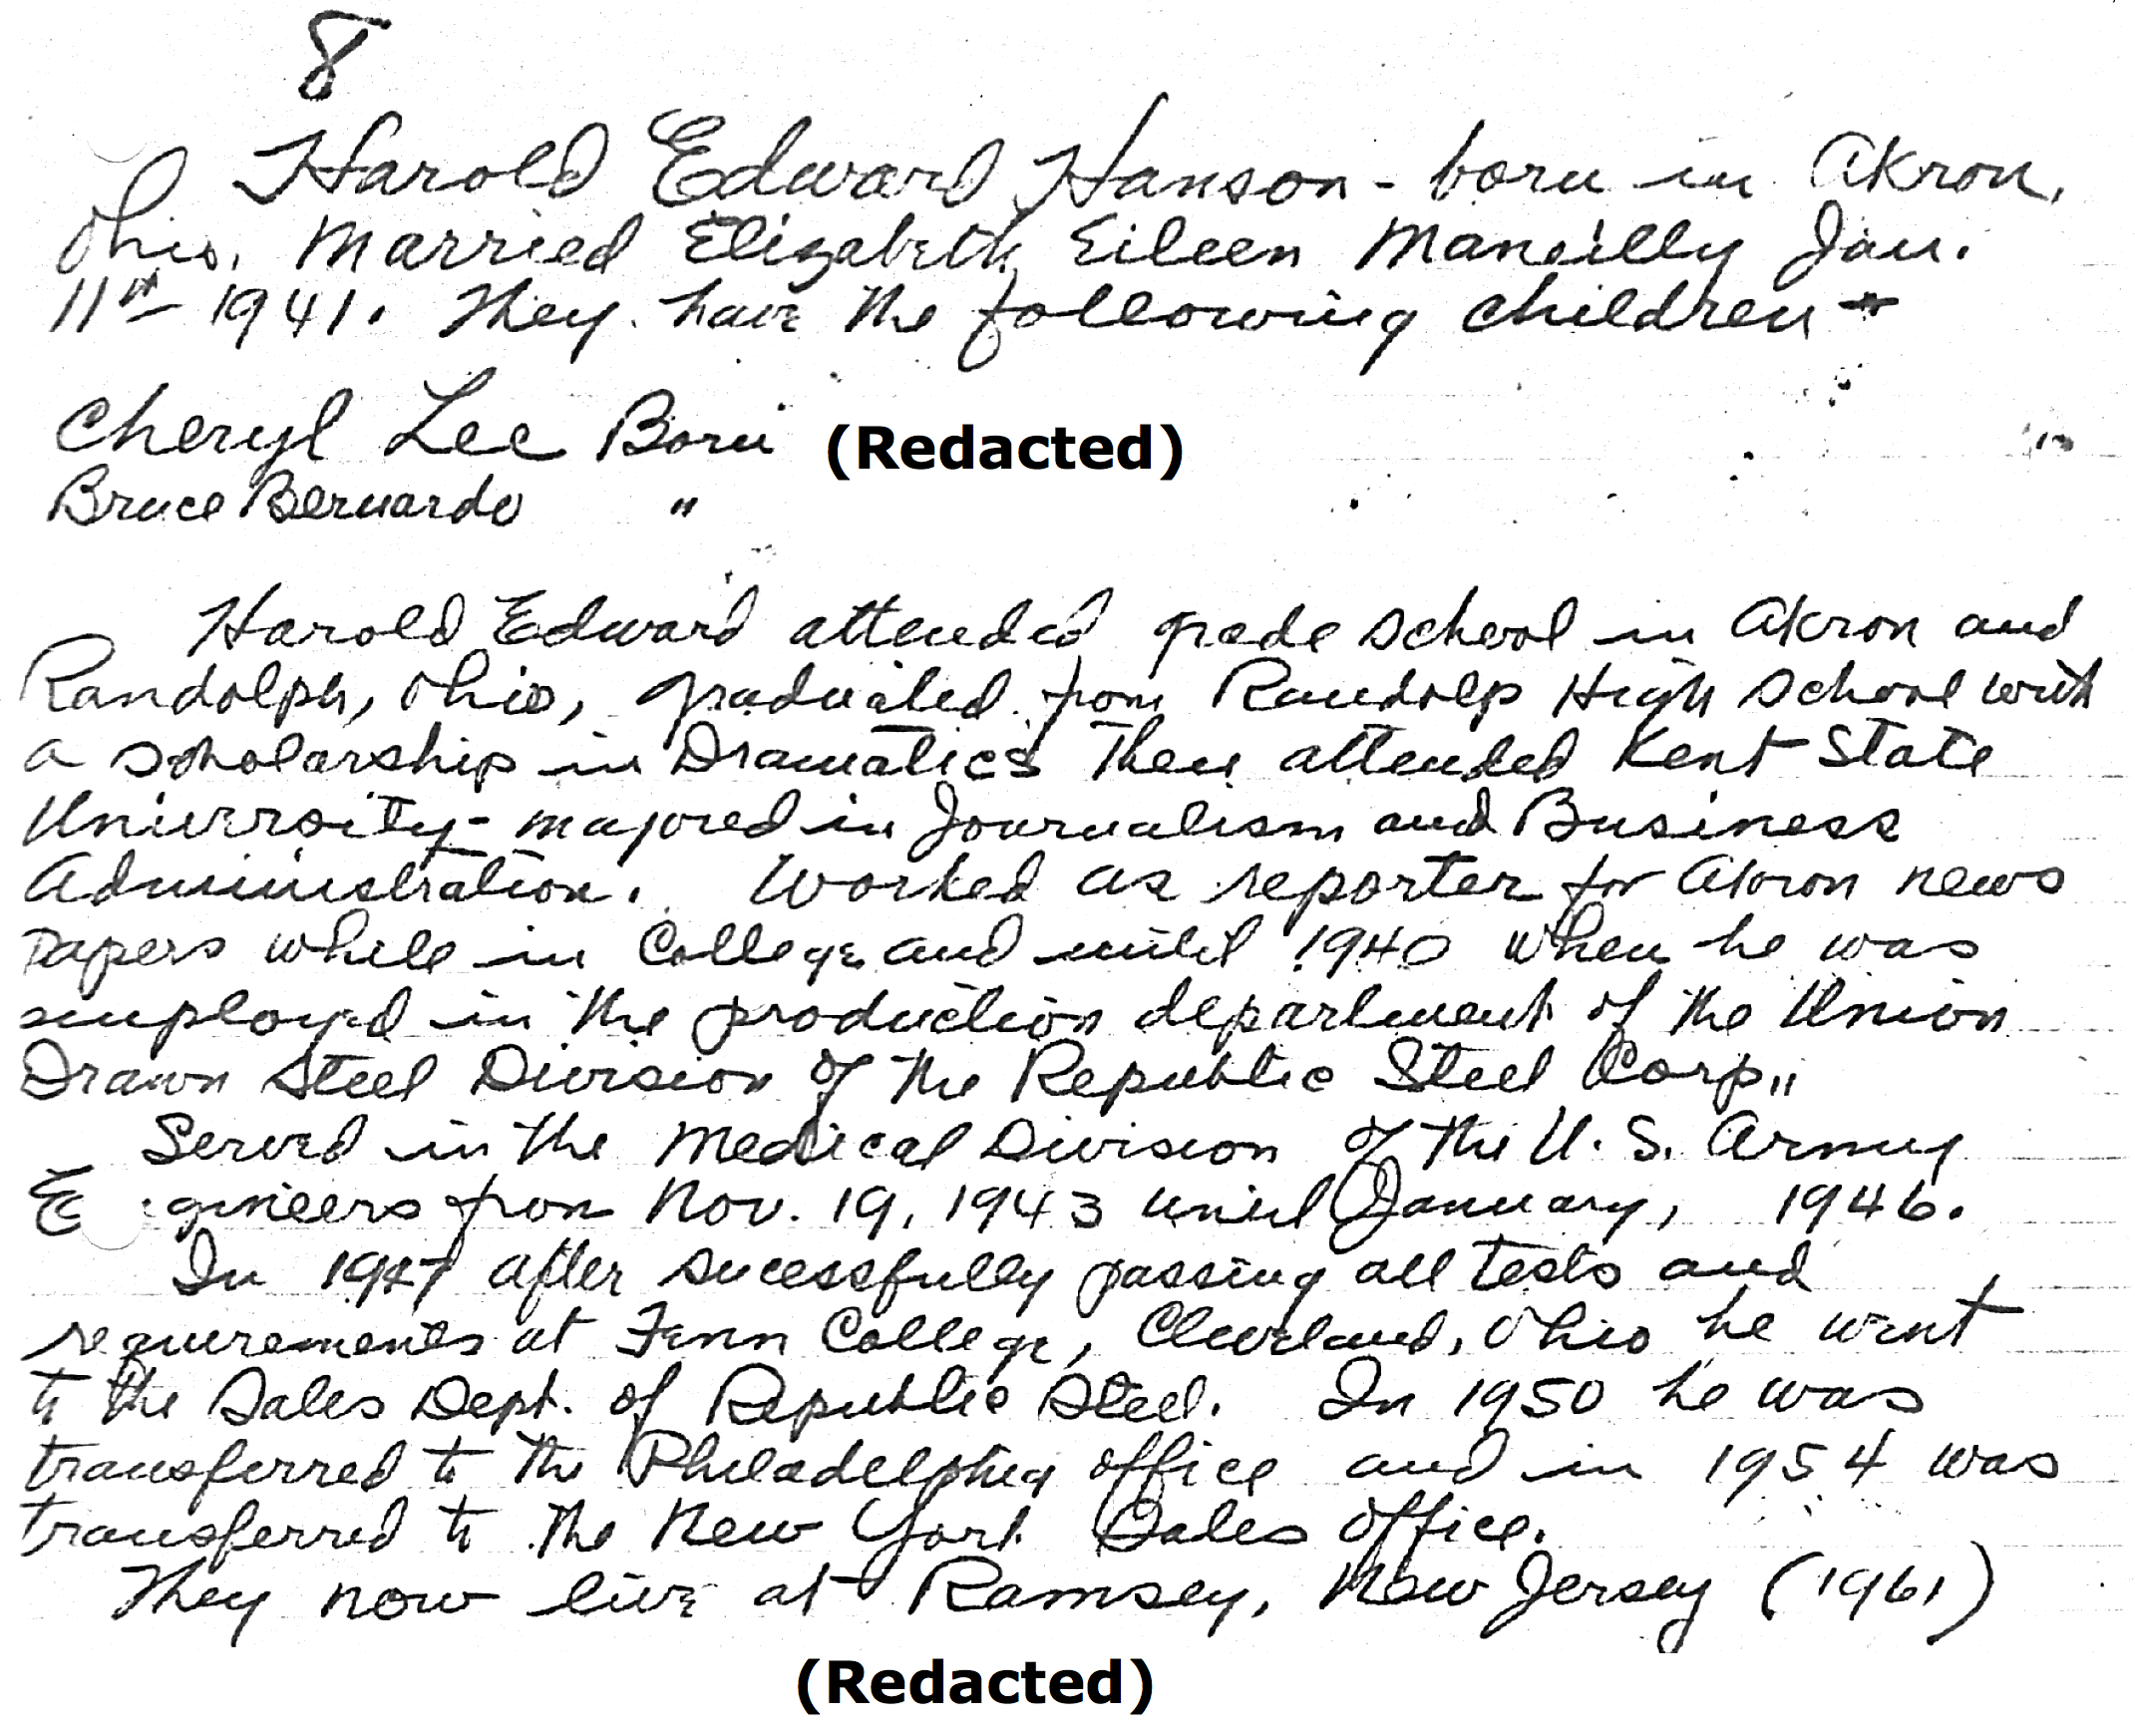 8
Harold Edward Hanson - born in Akron,
Ohio. Married Elizabeth Eileen Jan.
11th 1941. They have the following children -
Cheryl Lee Born (Redacted)
Bruce Bernardo "
Harold Edward attended grade school in Akron and
Randolph, Ohio, graduated from Randolp High School with
a scholarship in Dramatics Then attended Kent State
University - majored in Journalism and Business
Administration. Worked as reporter for Akron news
papers while in College and until 1940 when he was
employed in the production department of the Union
Drawn Steel Division of the Republic Steel Corp.,
Served in the Medical Division of the U.S. Army
E gineers from Nov. 19, 1943 until January, 1946.
In 1947 after sucessfully passing all tests and
requirements at Fenn College, Cleveland, Ohio he went
to the Sales Dept. of Republic Steel. In 1950 he was
transferred to the Philadelphia office and in 1954 was
transferred to the New York Sales office.
They now live at Ramsey, New Jersey (1961)
(Redacted)